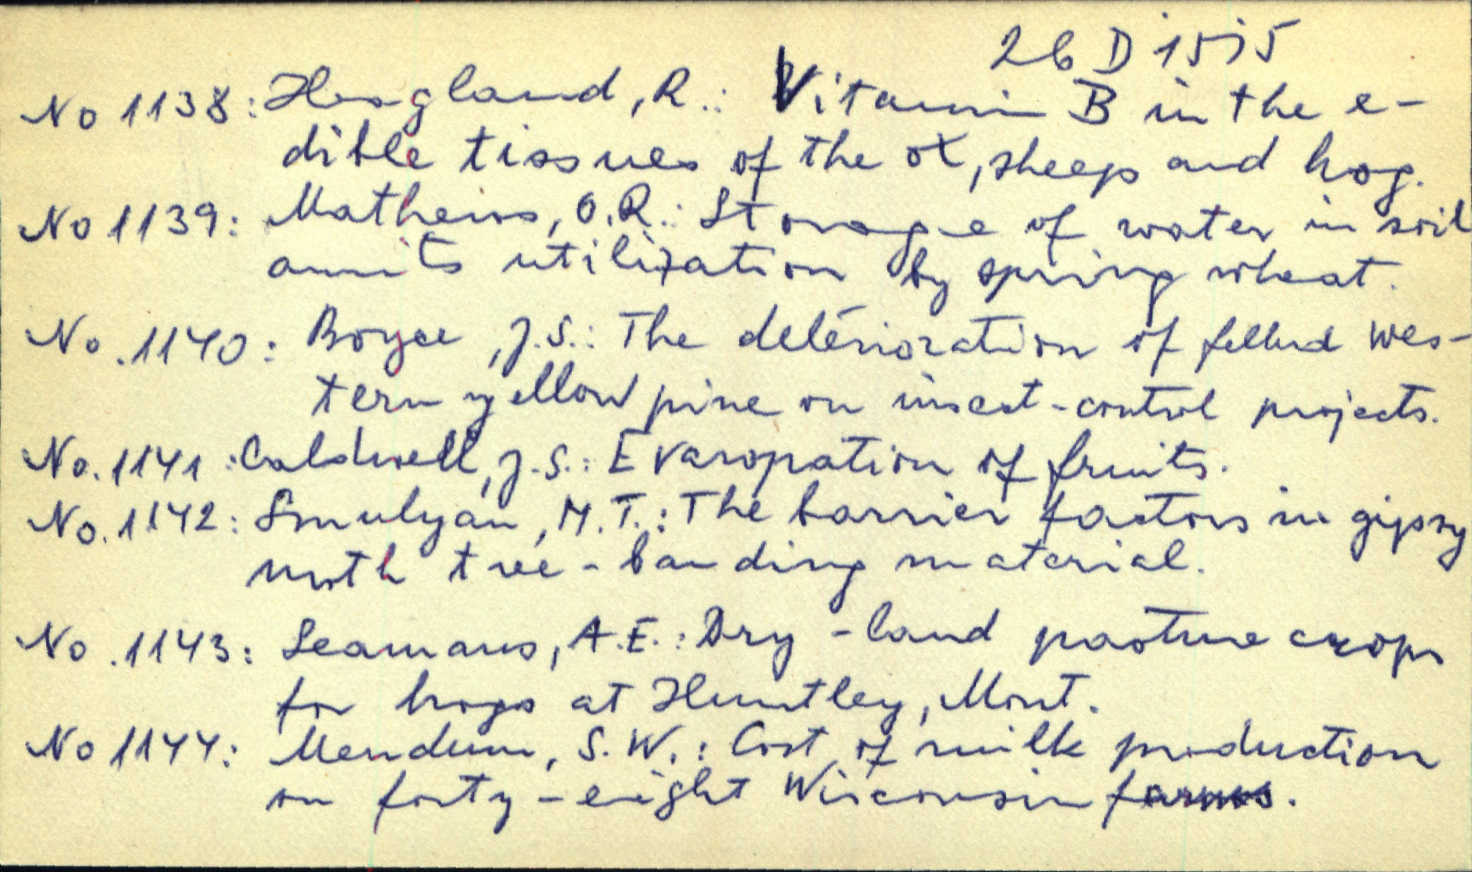 26 D 1575
No 1138: Hoagland, R.: Vitamin B in the e-
dible tissues of the ox, sheep and hog.
No 1139: Mathews, O.R.: Storage of water in soil
an its utilization by spring wheat.
No. 1140: Boyce, J.S.: The deterioration of felled wes-
tern yellow pine on insect-control projects.
No. 1141: Caldwell, J.S.: Evaropation of fruits.
No. 1142: Smulyan, M.T.: The barrier factors in gipsy
moth tree-banding material.
No. 1143: Seamans, A.E.: Dry-land pasture crops
for hogs at Huntley, Mont.
No 1144: Mendum, S.W.: Cost of milk production
on forty-eight Wisconsin farms.